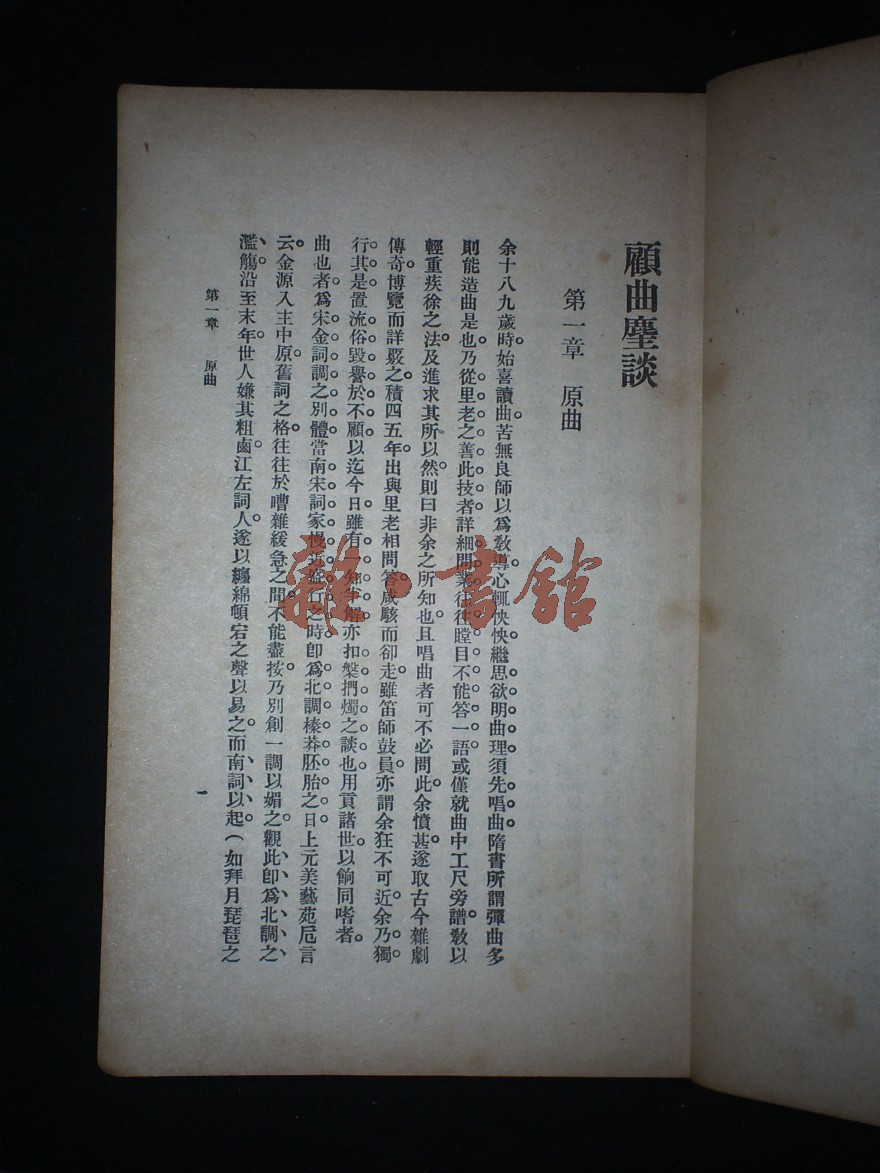 顧曲麈談
第一章　原曲
余十八九歲時始喜讀曲苦無良師以爲敎導心輒怏怏繼思欲明曲理須先唱曲隋書所謂彈曲多
則能造曲是也乃從里老之善此技者詳細問業往往瞠目不能答一語或僅就曲中工尺旁譜敎以
輕重疾徐之法及進求其所以然則曰非余之所知也且唱曲者可不必問此余憤甚遂取古今雜劇
傳奇博覽而詳覈之積四五年出與里老相問答咸駭而卻走雖笛師鼓員亦謂余狂不可近余乃獨
行其是置流俗毀譽於不顧以迄今日雖有一知半解亦扣槃捫燭之談也用貢諸世以餉同嗜者。
曲也者爲宋金詞調之別體當南宋詞家慢近盛行之時卽爲北調榛莽胚胎之日上元美藝苑卮言
云。金源入主中原舊詞之格往往於嘈雜緩急之間不能盡按乃別創一調以媚之觀此卽爲北調之
濫觴沿至末年世人嫌其粗鹵江左詞人遂以纏綿頓宕之聲以易之而南詞以起（如拜月琵琶之
第一章　原曲
一
雜·書館